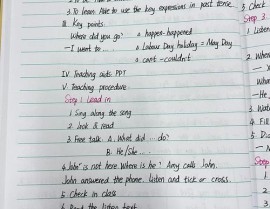 3. To learn Able to use the key expressions in past tense
III. Key points.
Where did you go? ① happen-happened
-I went to ... ② Labour Day holiday = May Day
③ can't - couldn't
IV. Teaching aids PPT
V. Teaching procedure
Step 1 Lead in
1. Sing along the song
2. look & read
3. Free talk. A. What did ... do?
B. He/She ...
4. John is not here. Where is he? Amy calls John.
John answered the phone. listen and tick or cross.
5. Check in class
6. Read the listen text
3 Check
Step 3
1. Listen
2. When
- X
Wha
-He
3. Wat
4. Fill
5. Di
- N
Step
1
2
3